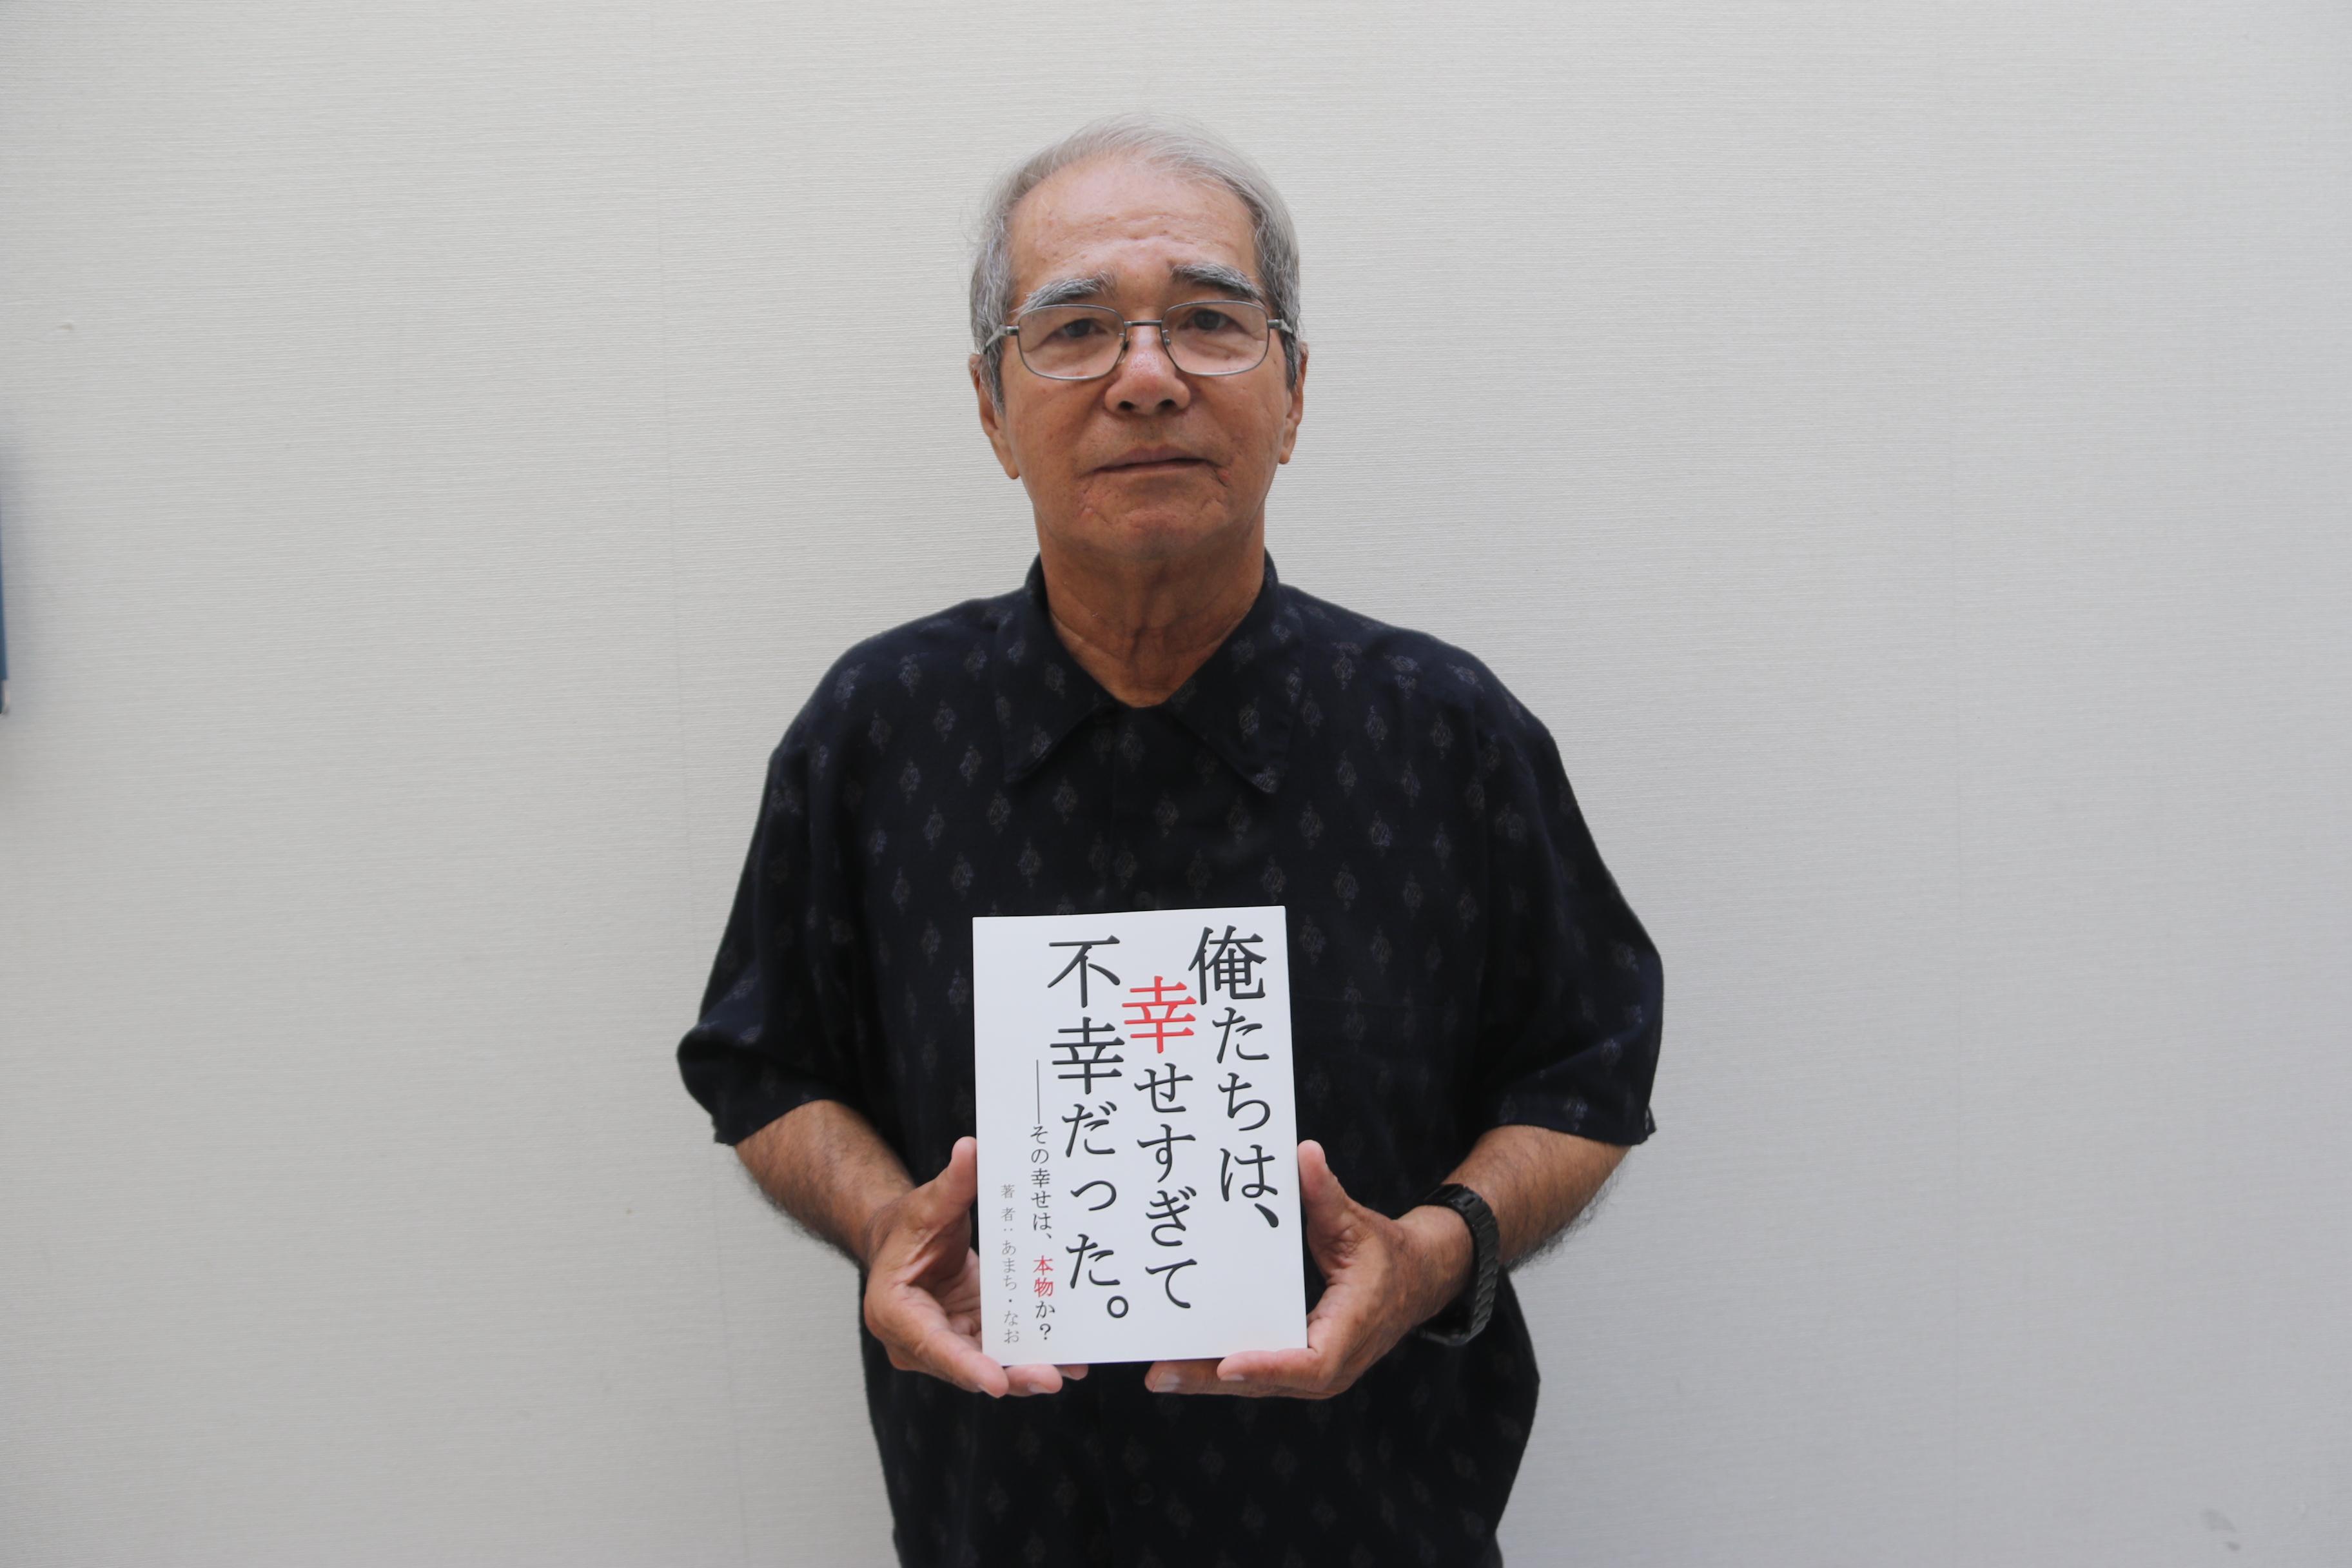 俺たちは、
幸せすぎて
不幸だった。
――その幸せは、本物か？
著者：あまち・なお